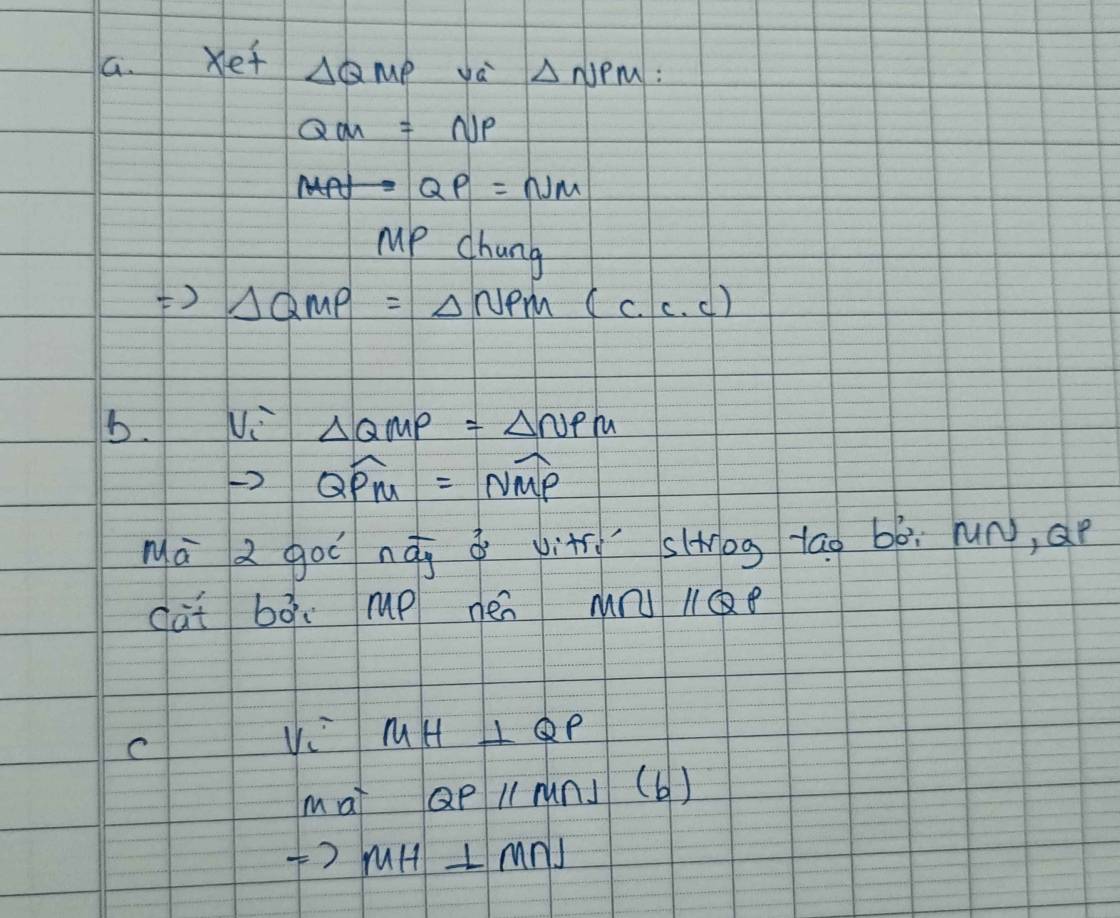 a. Xét ΔQMP và ΔNPM:
QM = NP
QP = NM
MP chung
=> ΔQMP = ΔNPM (c.c.c)
b. Vì ΔQMP = ΔNPM
-> QP̂M = NM̂P
Mà 2 góc này ở vị trí sltrog tạo bởi MN, QP
cắt bởi MP nên MN // QP
c Vì MH ⊥ QP
mà QP // MN (b)
=> MH ⊥ MN